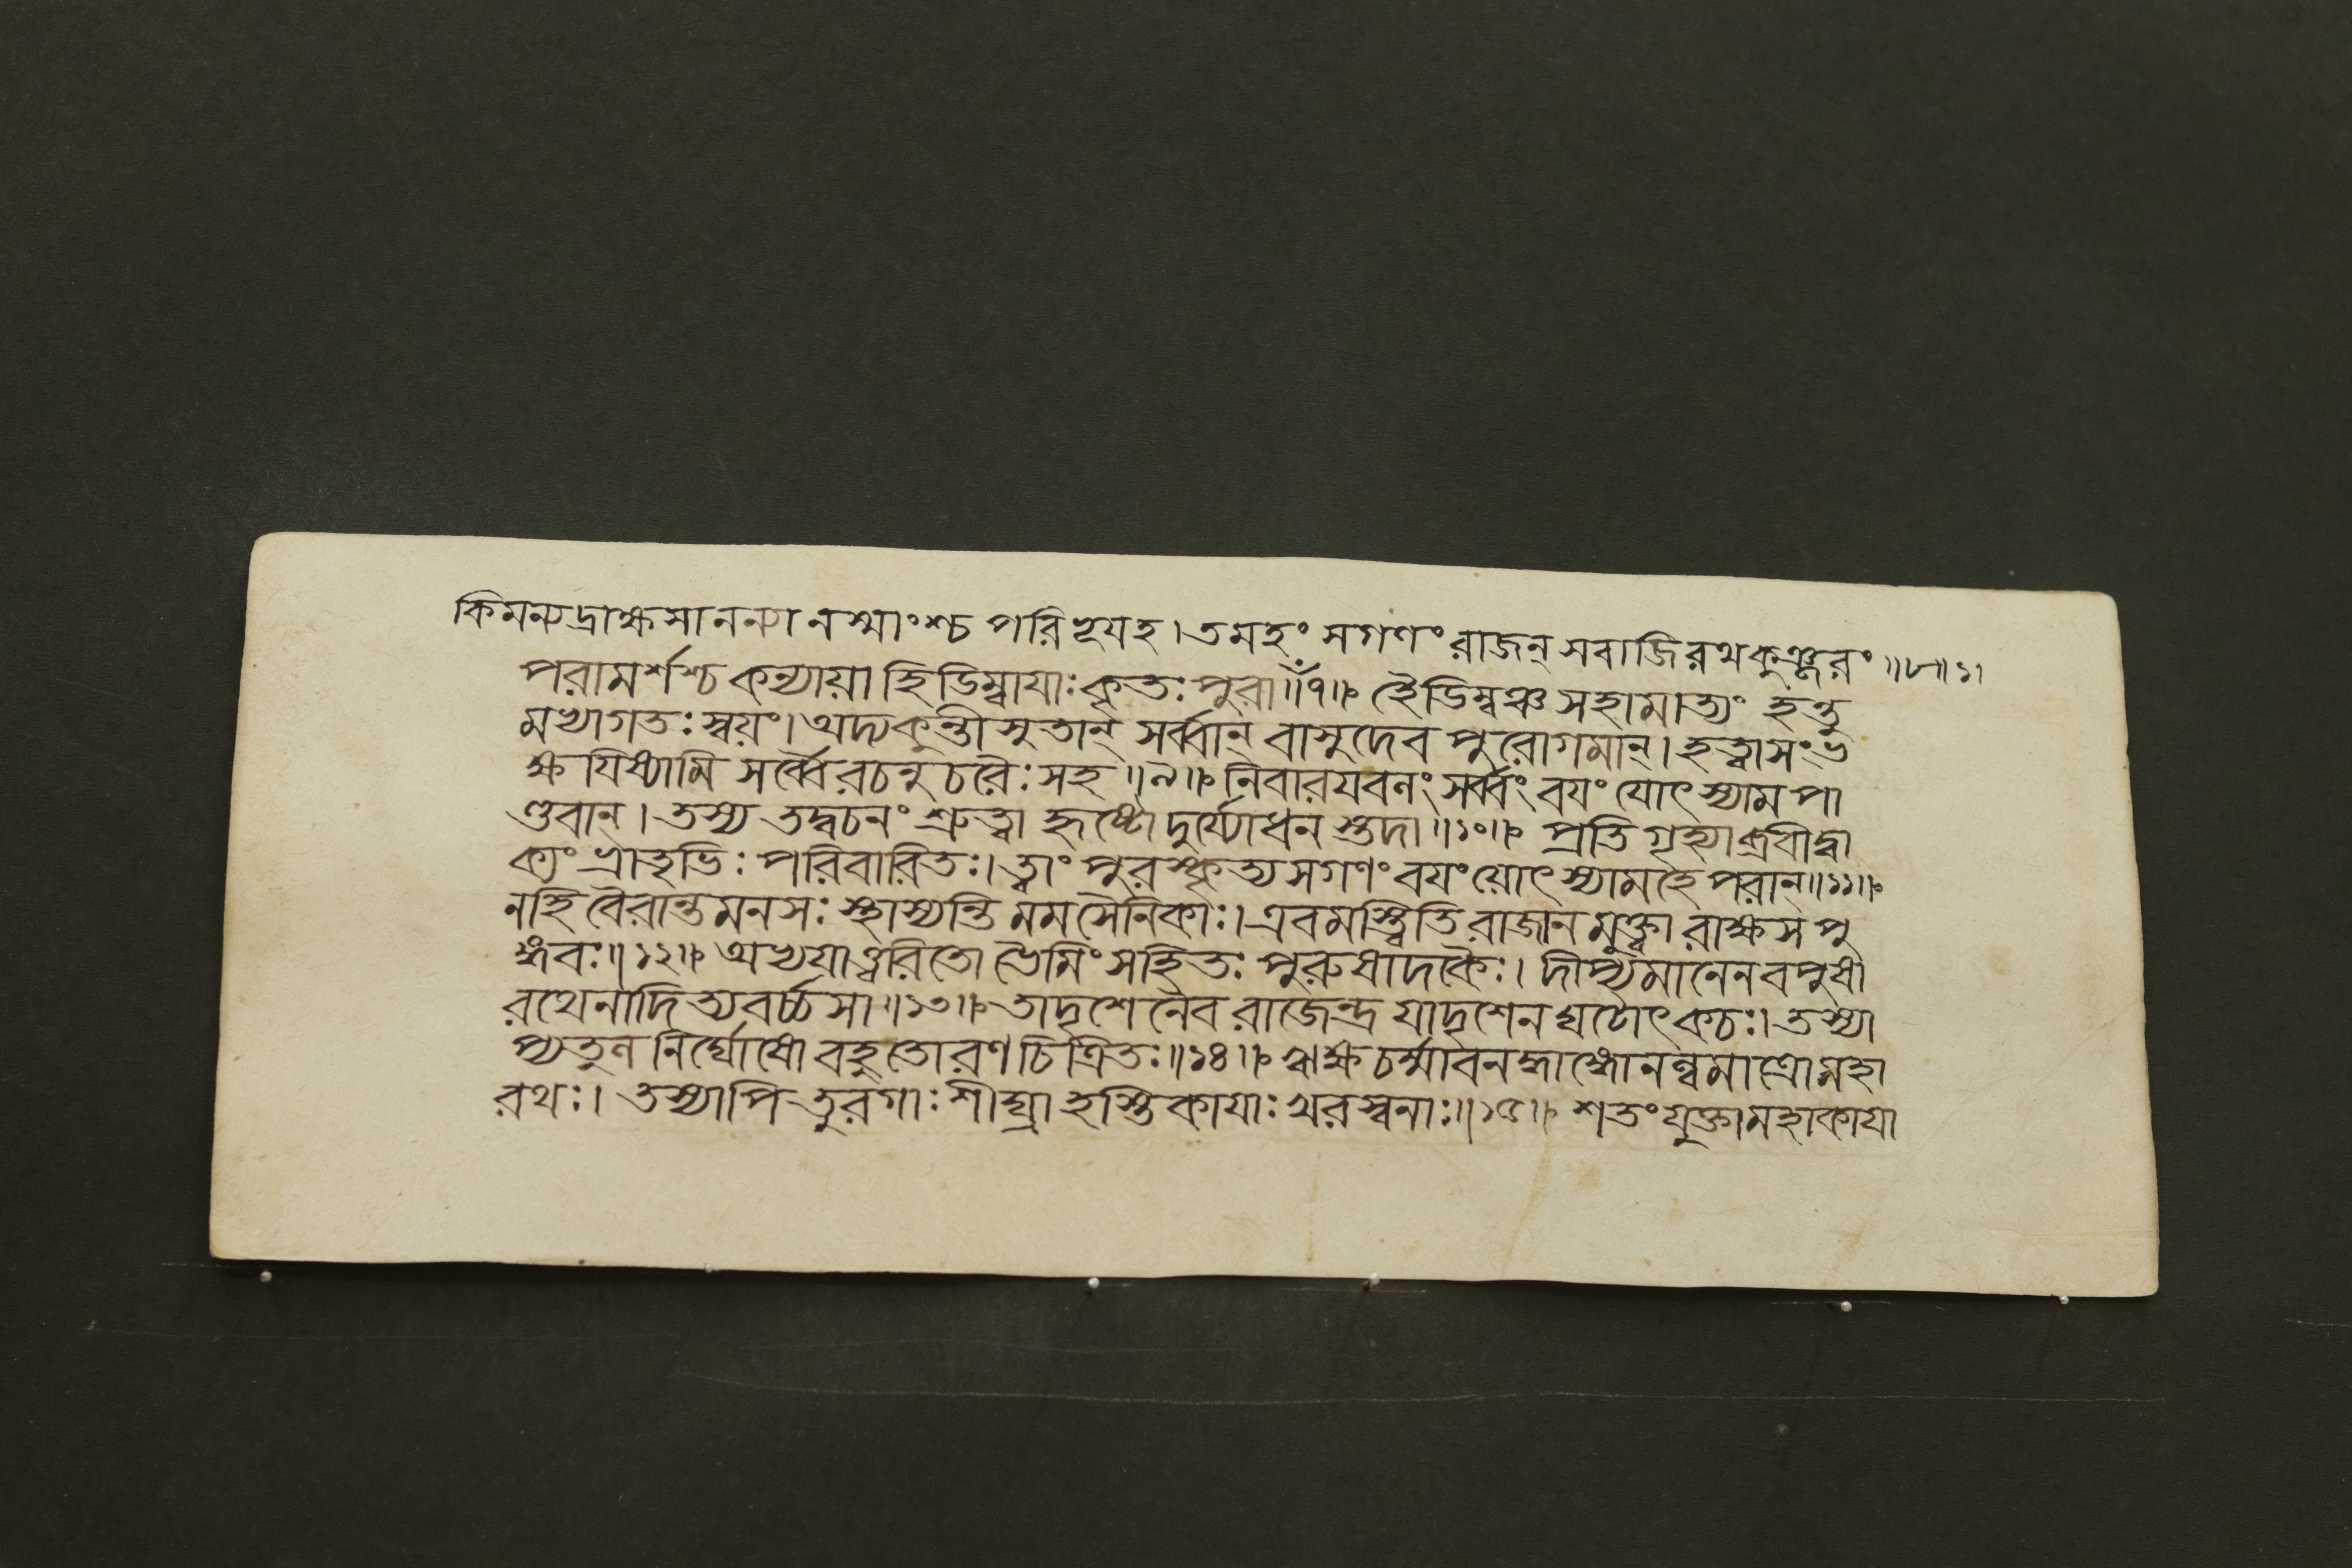 কিমন্যদ্রাক্ষসানন্যানস্মাংশ্চ পরিভূযহ। তমহং সগণং রাজন্ সবাজিরথকুঞ্জরং॥৮॥১।
পরামর্শশ্চ কন্যায়া হিডিম্বাযাঃ কৃতঃ পুরা॥৭॥ হৈডিম্বঞ্চ সহামাত্যং হন্তু
মভ্যাগতঃ স্বয়ং। অদ্য কুন্তীসুতান্ সর্ব্বান্ বাসুদেব পুরোগমান্। হত্বা সংভ
ক্ষযিষ্যামি সর্ব্বৈরচনুচরৈঃ সহ॥৯॥ নিবারযবনং সর্ব্বং বযং যোৎস্যাম পা
ণ্ডবান্। তস্য তদ্বচনং শ্রুত্বা হৃষ্টো দুর্য্যোধনস্তদা॥১০॥ প্রতিগৃহ্যাব্রবীদ্বা
ক্যং ভ্রাতৃভিঃ পরিবারিতঃ। ত্বাং পুরস্কৃত্য সগণং বযং য়োৎস্যামহে পরান্॥১১॥
নহি বৈরান্তমনসঃ স্থাস্যন্তি মম সৈনিকাঃ। এবমস্ত্বিতি রাজানমুক্ত্বা রাক্ষস পু
ঙ্গবঃ॥১২॥ অভ্যযাত্ত্বরিতো ভৈমিং সহিতঃ পুরুষাদকৈঃ। দীপ্যমানেন বপুষা
রথেনাদিত্যবর্চ্চসা॥১৩॥ তাদৃশেনৈব রাজেন্দ্র যাদৃশেন ঘটোৎকচঃ। তস্যা
প্যতুন নির্ঘোষো বহুতোরণচিত্রিতঃ॥১৪॥ ঋক্ষচর্ম্মাবনদ্ধাঙ্গো নল্বমাত্রো মহা
রথঃ। তস্যাপি তুরগাঃ শীঘ্রা হস্তিকাযাঃ খরস্বনাঃ॥১৫॥ শতং যুক্তা মহাকাযা